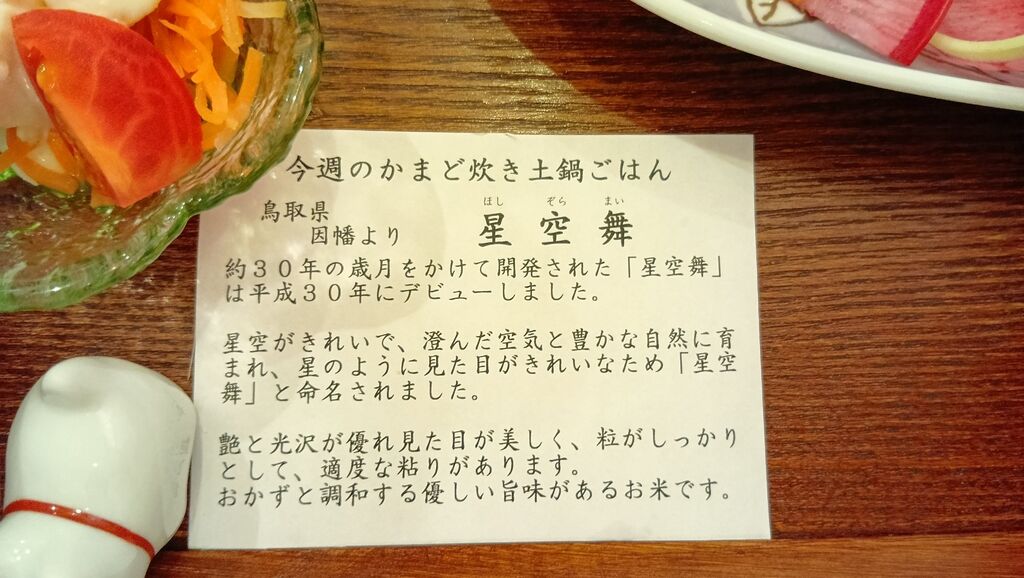 今週のかまど炊き土鍋ごはん
鳥取県
因幡より
ほし ぞら まい
星空舞
約３０年の歳月をかけて開発された「星空舞」
は平成３０年にデビューしました。
星空がきれいで、澄んだ空気と豊かな自然に育
まれ、星のように見た目がきれいなため「星空
舞」と命名されました。
艶と光沢が優れ見た目が美しく、粒がしっかり
として、適度な粘りがあります。
おかずと調和する優しい旨味があるお米です。